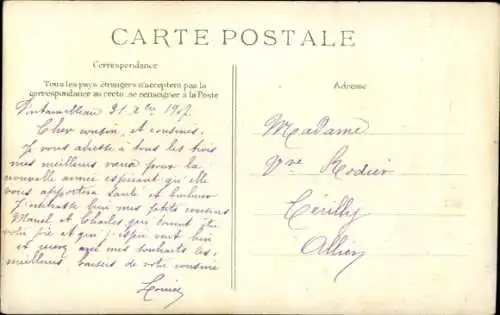 CARTE POSTALE
Correspondance
Tous les pays étrangers n'acceptent pas la
correspondance au recto, se renseigner à la Poste
Fontainebleau 31 Xbre 1907
Cher cousin, et cousines.
Je vous adresse à tous les trois
mes meilleurs vœux pour la
nouvelle année espérant qu'elle
vous apportera santé et bonheur
J'embrasse bien mes petits cousins
Marcel et Charles qui
votre joie et que j'espère vont bien
et avec mes souhaits les
meilleurs baisers de votre cousine
Louise
Adresse
Madame
Vve Rodier
Cérilly
Allier